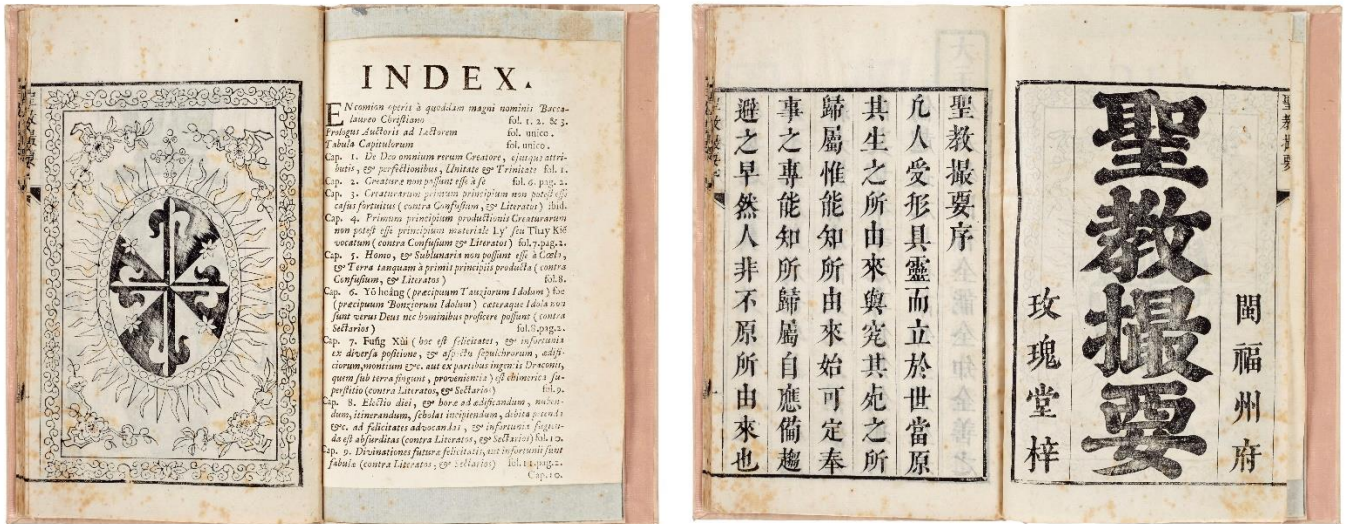 INDEX.
ENcomion operis à quodam magni nominis Bacca-
laureo Christiano fol. 1. 2. & 3.
Prologus Auctoris ad Lectorem fol. unico.
Tabula Capitulorum fol. unico.
Cap. 1. De Deo omnium rerum Creatore, ejusque attri-
butis, & perfectionibus, Unitate & Trinitate fol. 1.
Cap. 2. Creaturæ non possunt esse à se fol. 6. pag. 2.
Cap. 3. Creaturarum primum principium non potest esse
casus fortuitus (contra Confusium, & Literatos) ibid.
Cap. 4. Primum principium productionis Creaturarum
non potest esse principium materiale Ly' seu Thay Kiĕ
vocatum (contra Confusium & Literatos) fol. 7. pag. 2.
Cap. 5. Homo, & Sublunaria non possunt esse à Cœlo,
& Terra tanquam à primis principiis producta (contra
Confusium, & Literatos) fol. 8.
Cap. 6. Yŏ hoâng (præcipuum Tauziorum Idolum) foe
(præcipuum Bonziorum Idolum) cæteraque Idola non
sunt verus Deus nec hominibus proficere possunt (contra
Sectarios) fol. 8. pag. 2.
Cap. 7. Fung Xùi (hoc est felicitates, & infortunia
ex diversa positione, & aspectu sepulchrorum, ædifi-
ciorum, montium &c. aut ex partibus ingentis Draconis,
quem sub terra fingunt, provenientia) est chimerica su-
perstitio (contra Literatos, & Sectarios) fol. 9.
Cap. 8. Electio diei, & horæ ad ædificandum, nuben-
dum, itinerandum, scholas incipiendum, debita petenda
&c. ad felicitates advocandas, & infortunia fugan-
da est absurditas (contra Literatos, & Sectarios) fol. 10.
Cap. 9. Divinationes futuræ felicitatis, aut infortunii sunt
fabula (contra Literatos, & Sectarios) fol. 11. pag. 2.
Cap. 10.
聖教撮要
閩福州府
聖教撮要
玫瑰堂梓
聖教撮要序
凢人受形具靈而立於世當原
其生之所由來與究其死之所
歸屬惟能知所由來始可定奉
事之專能知所歸屬自應備趨
避之早然人非不原所由來也